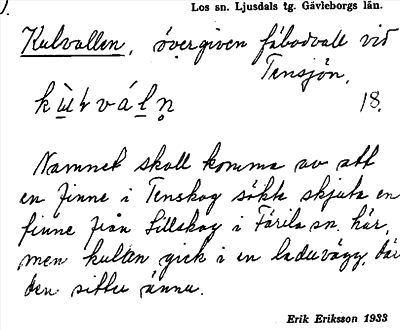 Los sn. Ljusdals tg. Gävleborgs län.
Kulvallen, övergiven fäbodvall vid
Tensjön.
18.
Namnet skall komma av att
en finne i Tenskog sökte skjuta en
finne från Lillskog i Färila sn. här,
men kulan gick i en laduvägg, där
den sitter ännu.
Erik Eriksson 1933